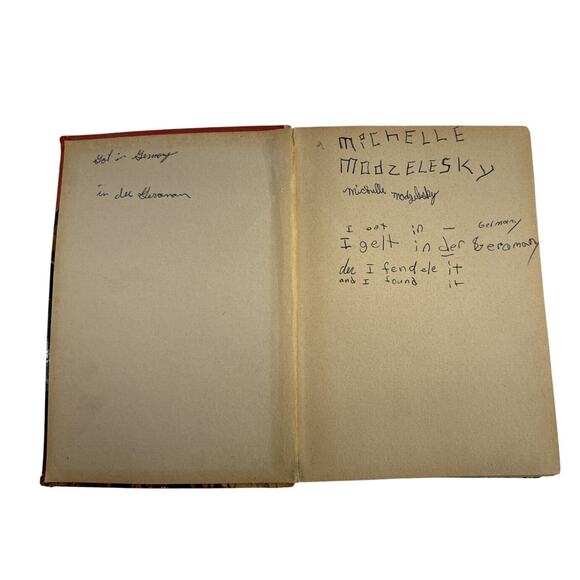 Got in Germany
in der Geroman
MiCHELLE
MODZELESKY
michelle modzelesky
I got in — Germany
I gelt in der Geromany
der I fendele it
and I found it